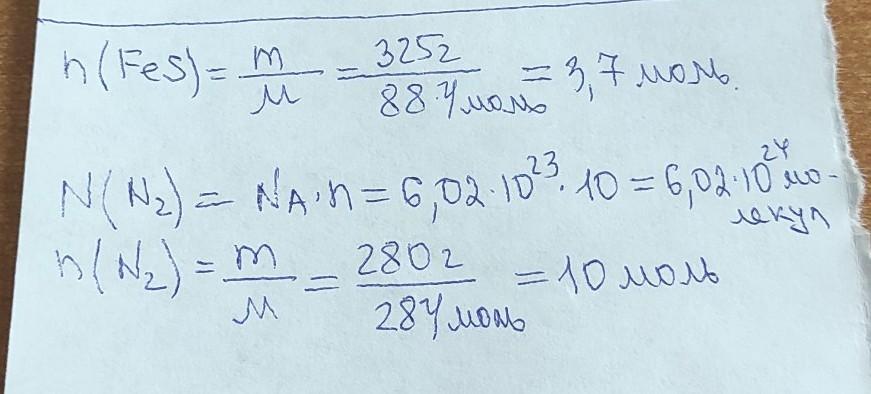 n(FeS) = m/M = 325г/88г/моль = 3,7 моль.
N(N₂) = NA · n = 6,02 · 10²³ · 10 = 6,02 · 10²⁴ мо-
лекул
n(N₂) = m/M = 280г/28г/моль = 10 моль